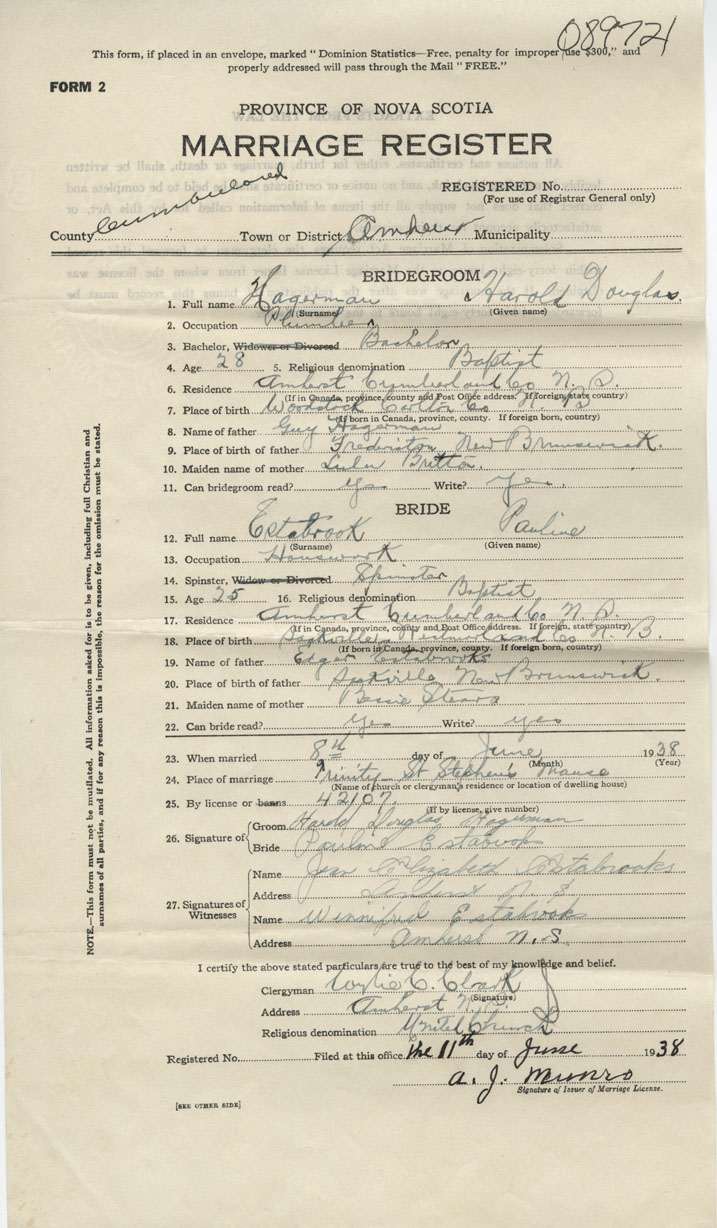 08972
This form, if placed in an envelope, marked "Dominion Statistics—Free, penalty for improper use $300," and
properly addressed will pass through the Mail "FREE."
FORM 2
PROVINCE OF NOVA SCOTIA
MARRIAGE REGISTER
REGISTERED No.
(For use of Registrar General only)
County Cumberland Town or District Amherst Municipality
BRIDEGROOM
1. Full name Hagerman Harold Douglas
(Surname) (Given name)
2. Occupation Plumber
3. Bachelor, Widower or Divorced Bachelor
4. Age 28 5. Religious denomination Baptist
6. Residence Amherst Cumberland Co N. S.
(If in Canada, province, county and Post Office address. If foreign, state country)
7. Place of birth Woodstock Carlton Co N. B
(If born in Canada, province, county. If foreign born, country)
8. Name of father Guy Hagerman
9. Place of birth of father Fredericton New Brunswick.
10. Maiden name of mother Britton.
11. Can bridegroom read? yes Write? yes.
BRIDE
12. Full name Estabrook Pauline
(Surname) (Given name)
13. Occupation Housework
14. Spinster, Widow or Divorced Spinster
15. Age 25 16. Religious denomination Baptist
17. Residence Amherst Cumberland Co N. S.
(If in Canada, province, county and Post Office address. If foreign, state country)
18. Place of birth Sackville Westmorland Co N. B.
(If born in Canada, province, county. If foreign born, country)
19. Name of father Edgar Estabrooks
20. Place of birth of father Sackville New Brunswick.
21. Maiden name of mother Bessie Stears
22. Can bride read? yes Write? yes
23. When married 8th day of June 1938
(Month) (Year)
24. Place of marriage Trinity St Stephen's Manse
(Name of church or clergyman's residence or location of dwelling house)
25. By license or banns 42107.
(If by license, give number)
26. Signature of
Groom Harold Douglas Hagerman
Bride Pauline Estabrook
27. Signatures of Witnesses
Name Jean Elizabeth Estabrooks
Address Amherst N. S
Name Winnifred Estabrook
Address Amherst N. S.
I certify the above stated particulars are true to the best of my knowledge and belief.
Clergyman Wylie C. Clark
(Signature)
Address Amherst N. S.
Religious denomination United Church
Registered No. Filed at this office the 11th day of June 1938
A. J. Munro
Signature of Issuer of Marriage License.
[SEE OTHER SIDE]
NOTE.—This form must not be mutilated. All information asked for is to be given, including full Christian and
surnames of all parties, and if for any reason this is impossible, the reason for the omission must be stated.